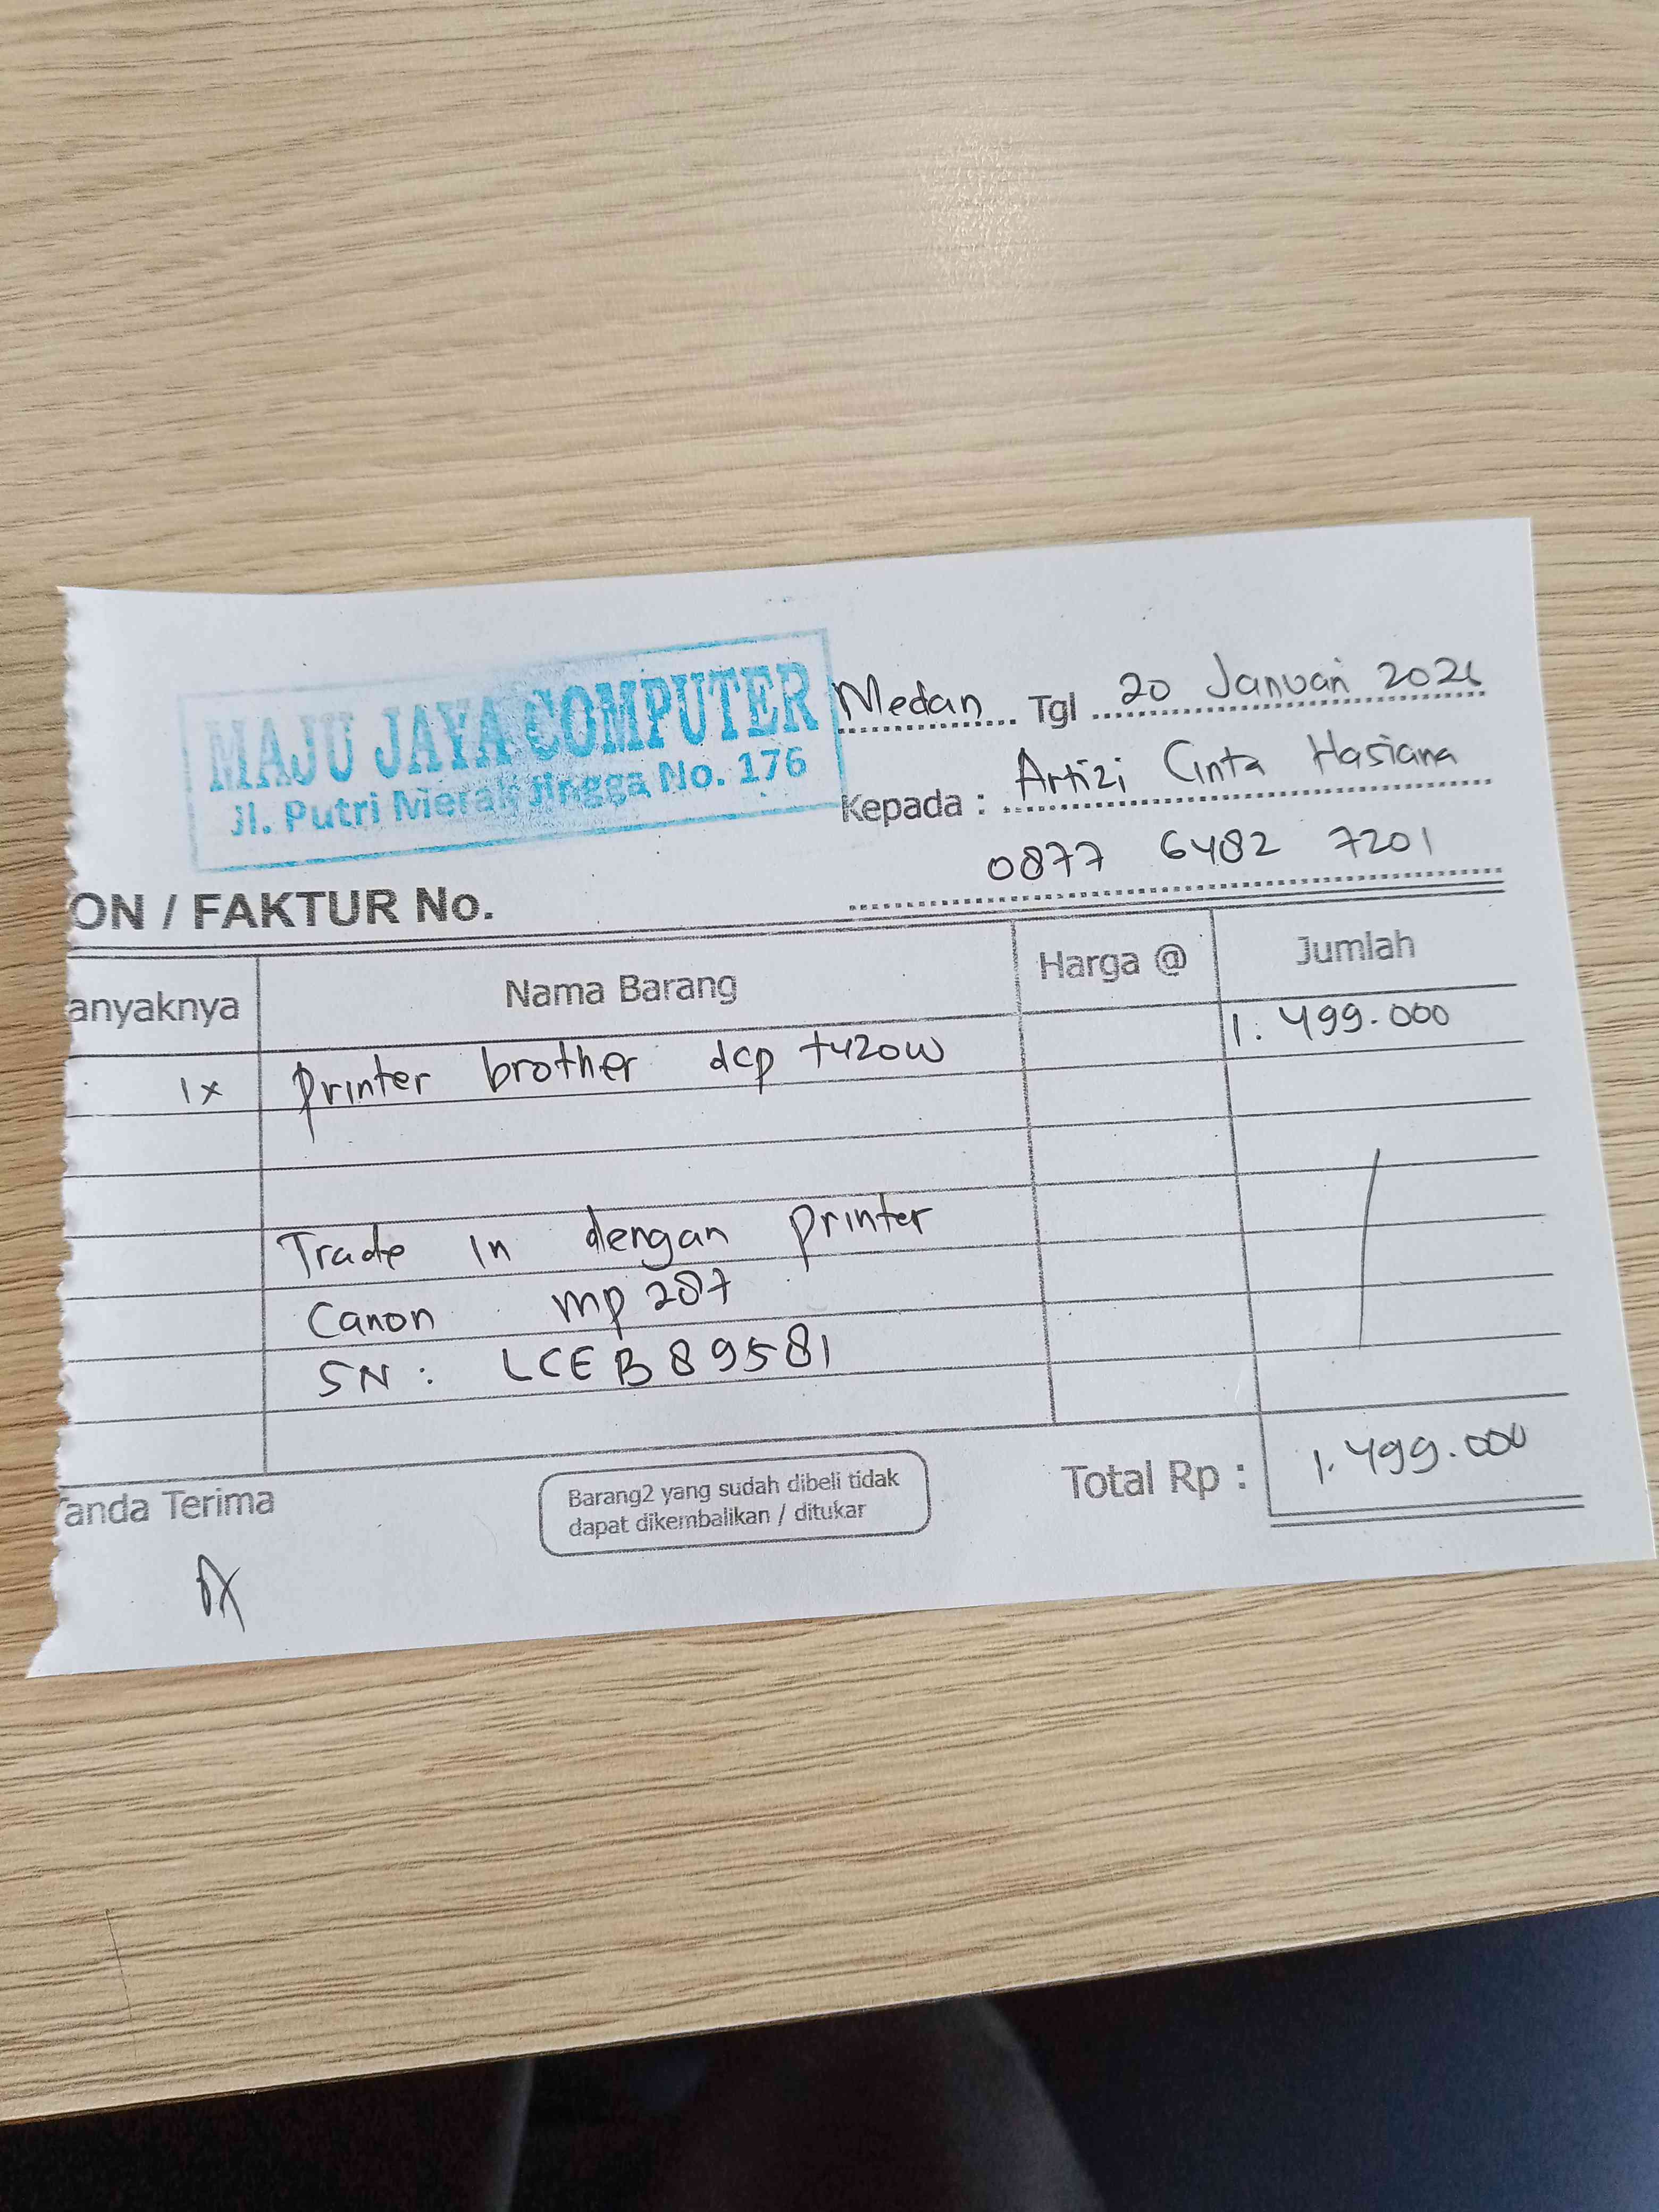 MAJU JAYA COMPUTER
Jl. Putri Merak Jingga No. 176
Medan Tgl 20 Januari 2026
Kepada : Artizi Cinta Hasiana
0877 6482 7201
ON / FAKTUR No.
anyaknya Nama Barang Harga @ Jumlah
1x printer brother dcp t420w 1.499.000
Trade in dengan printer
Canon mp 287
SN : LCEB89581
anda Terima
Barang2 yang sudah dibeli tidak
dapat dikembalikan / ditukar
Total Rp : 1.499.000